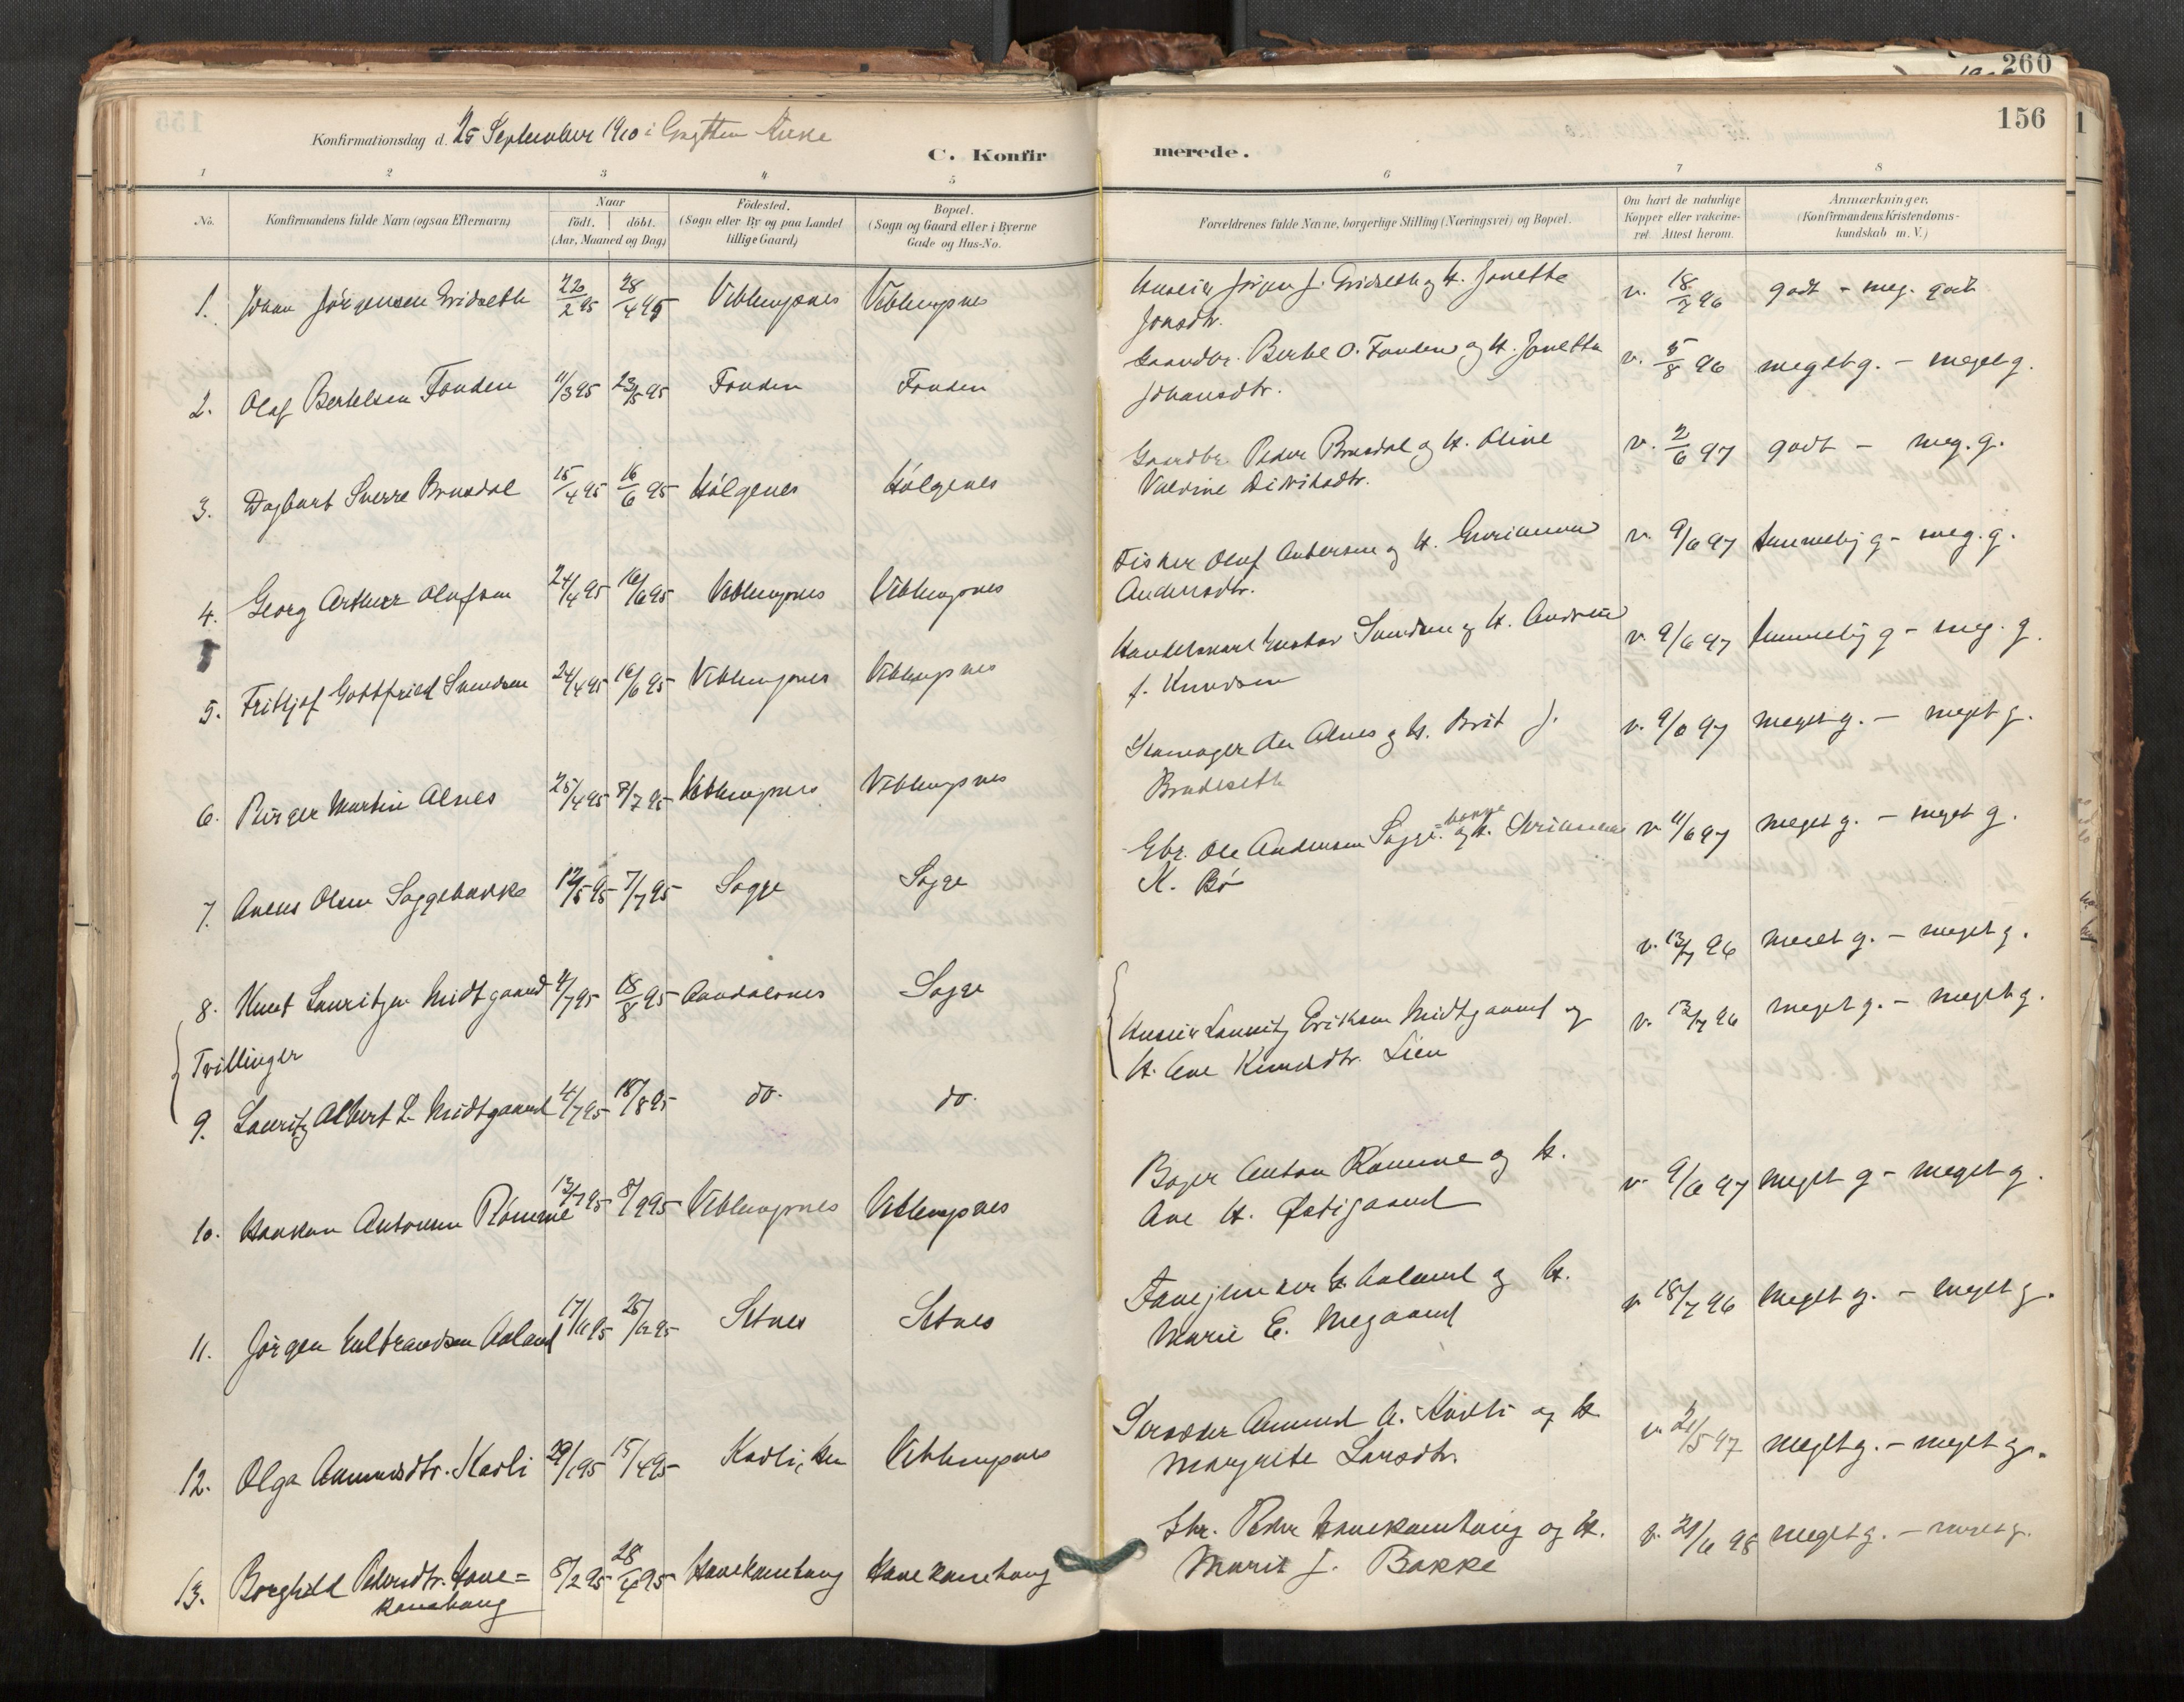 260
156
Konfirmationsdag d. 25 September 1910 i Grytten Kirke
C. Konfirmerede.
1 2 3 4 5 6 7 8
No. Konfirmandens fulde Navn (ogsaa Efternavn) Naar födt. döbt. (Aar, Maaned og Dag) Födested. (Sogn eller By og paa Landet tillige Gaard) Bopæl. (Sogn og Gaard eller i Byerne Gade og Hus-No. Forældrenes fulde Navne, borgerlige Stilling (Næringsvei) og Bopæl. Om havt de naturlige Kopper eller vakcineret. Attest herom. Anmærkninger. (Konfirmandens Kristendomskundskab m. V.)
1. Johan Jörgensen Eridseth 22/2 95 28/4 95 Veblungsnes Veblungsnes Jörgen J. Eridseth og H. Jonetta Jonsdtr. v. 18/7 96 godt - meg. godt
2. Olaf Bertelsen Fonden 11/3 95 23/5 95 Fonden Fonden Gaardbr. Bertel O. Fonden og H. Jonetta Johansdtr. v. 5/8 96 meget g. - meget g.
3. Dagbart Sverre Brusdal 15/4 95 16/6 95 Hólgenes Hólgenes Gaardbr. Peder Brusdal og H. Oline Valdine Didriksdtr. v. 2/6 97 godt - meg. g.
4. Georg Arthur Olufsen 24/4 95 16/6 95 Veblungsnes Veblungsnes Fisker Oluf Andersen og H. Andersdtr. v. 9/6 97 temmelig g - meg. g.
5. Fritjof Gottfried Svendsen 24/4 95 16/6 95 Veblungsnes Veblungsnes Handelsmand Gustav Svendsen og H. Andrine f. Knudsen v. 9/6 97 temmelig g - meg. g.
6. Birger Martin Alnes 25/4 95 8/7 95 Veblungsnes Veblungsnes Skomager Ole Alnes og H. Brit J. Brudeseth v. 9/6 97 meget g. - meget g.
7. Anens Olsen Soggebakke 12/5 95 7/7 95 Sogge Sogge Gbr. Ole Andersen Sogge=bakke og H. K. Bö v. 11/6 97 meget g. - meget g.
8. Knut Lauritzen Midtgaard 4/7 95 18/8 95 Aandalsnes Sogge v. 13/7 96 meget g. - meget g.
Tvillinger
Lauritz Eriksen Midtgaard og H. Ane Knudsdtr. Lien
9. Lauritz Albert L. Midtgaard 4/7 95 18/8 95 do. do. v. 13/7 96 meget g. - meget g.
10. Haakon Antonsen Römme 13/7 95 8/9 95 Veblungsnes Veblungsnes Bager Anton Römme og H. Ane H. Östigaard v. 9/6 97 meget g - meget g.
11. Jörgen Aaland Setnes Setnes Fanejunker H. Aaland og H. Marie E. v. 18/7 96 meget g. - meget g.
12. Olga Aamundsdtr. Kavli 29/1 95 15/4 95 Kavli, Veblungsnes Skrædder Amund A. Kavli og H. Margrete Larsdtr. v. 21/5 97 meget g. - meget g.
13. Borghild Pedersdtr. Hanekamhaug 8/2 95 28/4 95 Hanekamhaug Hanekamhaug Gbr. Peder Hanekamhaug og H. Marit J. Bakke v. 21/6 98 meget g. - meget g.